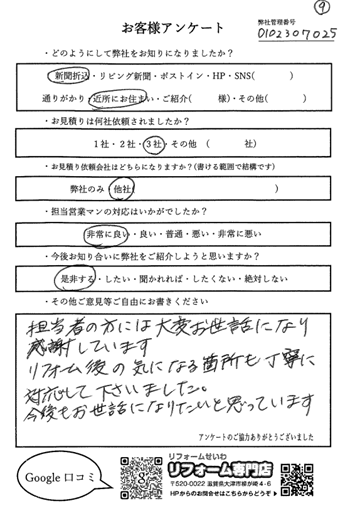 ⑨
お客様アンケート
弊社管理番号
0102307025
・どのようにして弊社をお知りになりましたか？
新聞折込・リビング新聞・ポストイン・HP・SNS(　　　)
通りがかり・近所にお住まい・ご紹介(　　様)・その他(　　)
・お見積りは何社依頼されましたか？
1社・2社・3社・その他　(　　　社)
・お見積り依頼会社はどちらになりますか？(書ける範囲で結構です)
弊社のみ・他社(　　　　　　　)
・担当営業マンの対応はいかがでしたか？
非常に良い・良い・普通・悪い・非常に悪い
・今後お知り合いに弊社をご紹介しようと思いますか？
是非する・したい・聞かれれば・したくない・絶対しない
・その他ご意見等ご自由にお書きください
担当者の方には大変お世話になり
感謝しています
リフォーム後の気になる箇所も丁寧に
対応して下さいました。
今後もお世話になりたいと思っています
アンケートのご協力ありがとうございました
Google 口コミ
リフォームせいわ
リフォーム専門店
〒520-0022 滋賀県大津市柳が崎4-6
HPからのお問合せはこちらからどうぞ▶